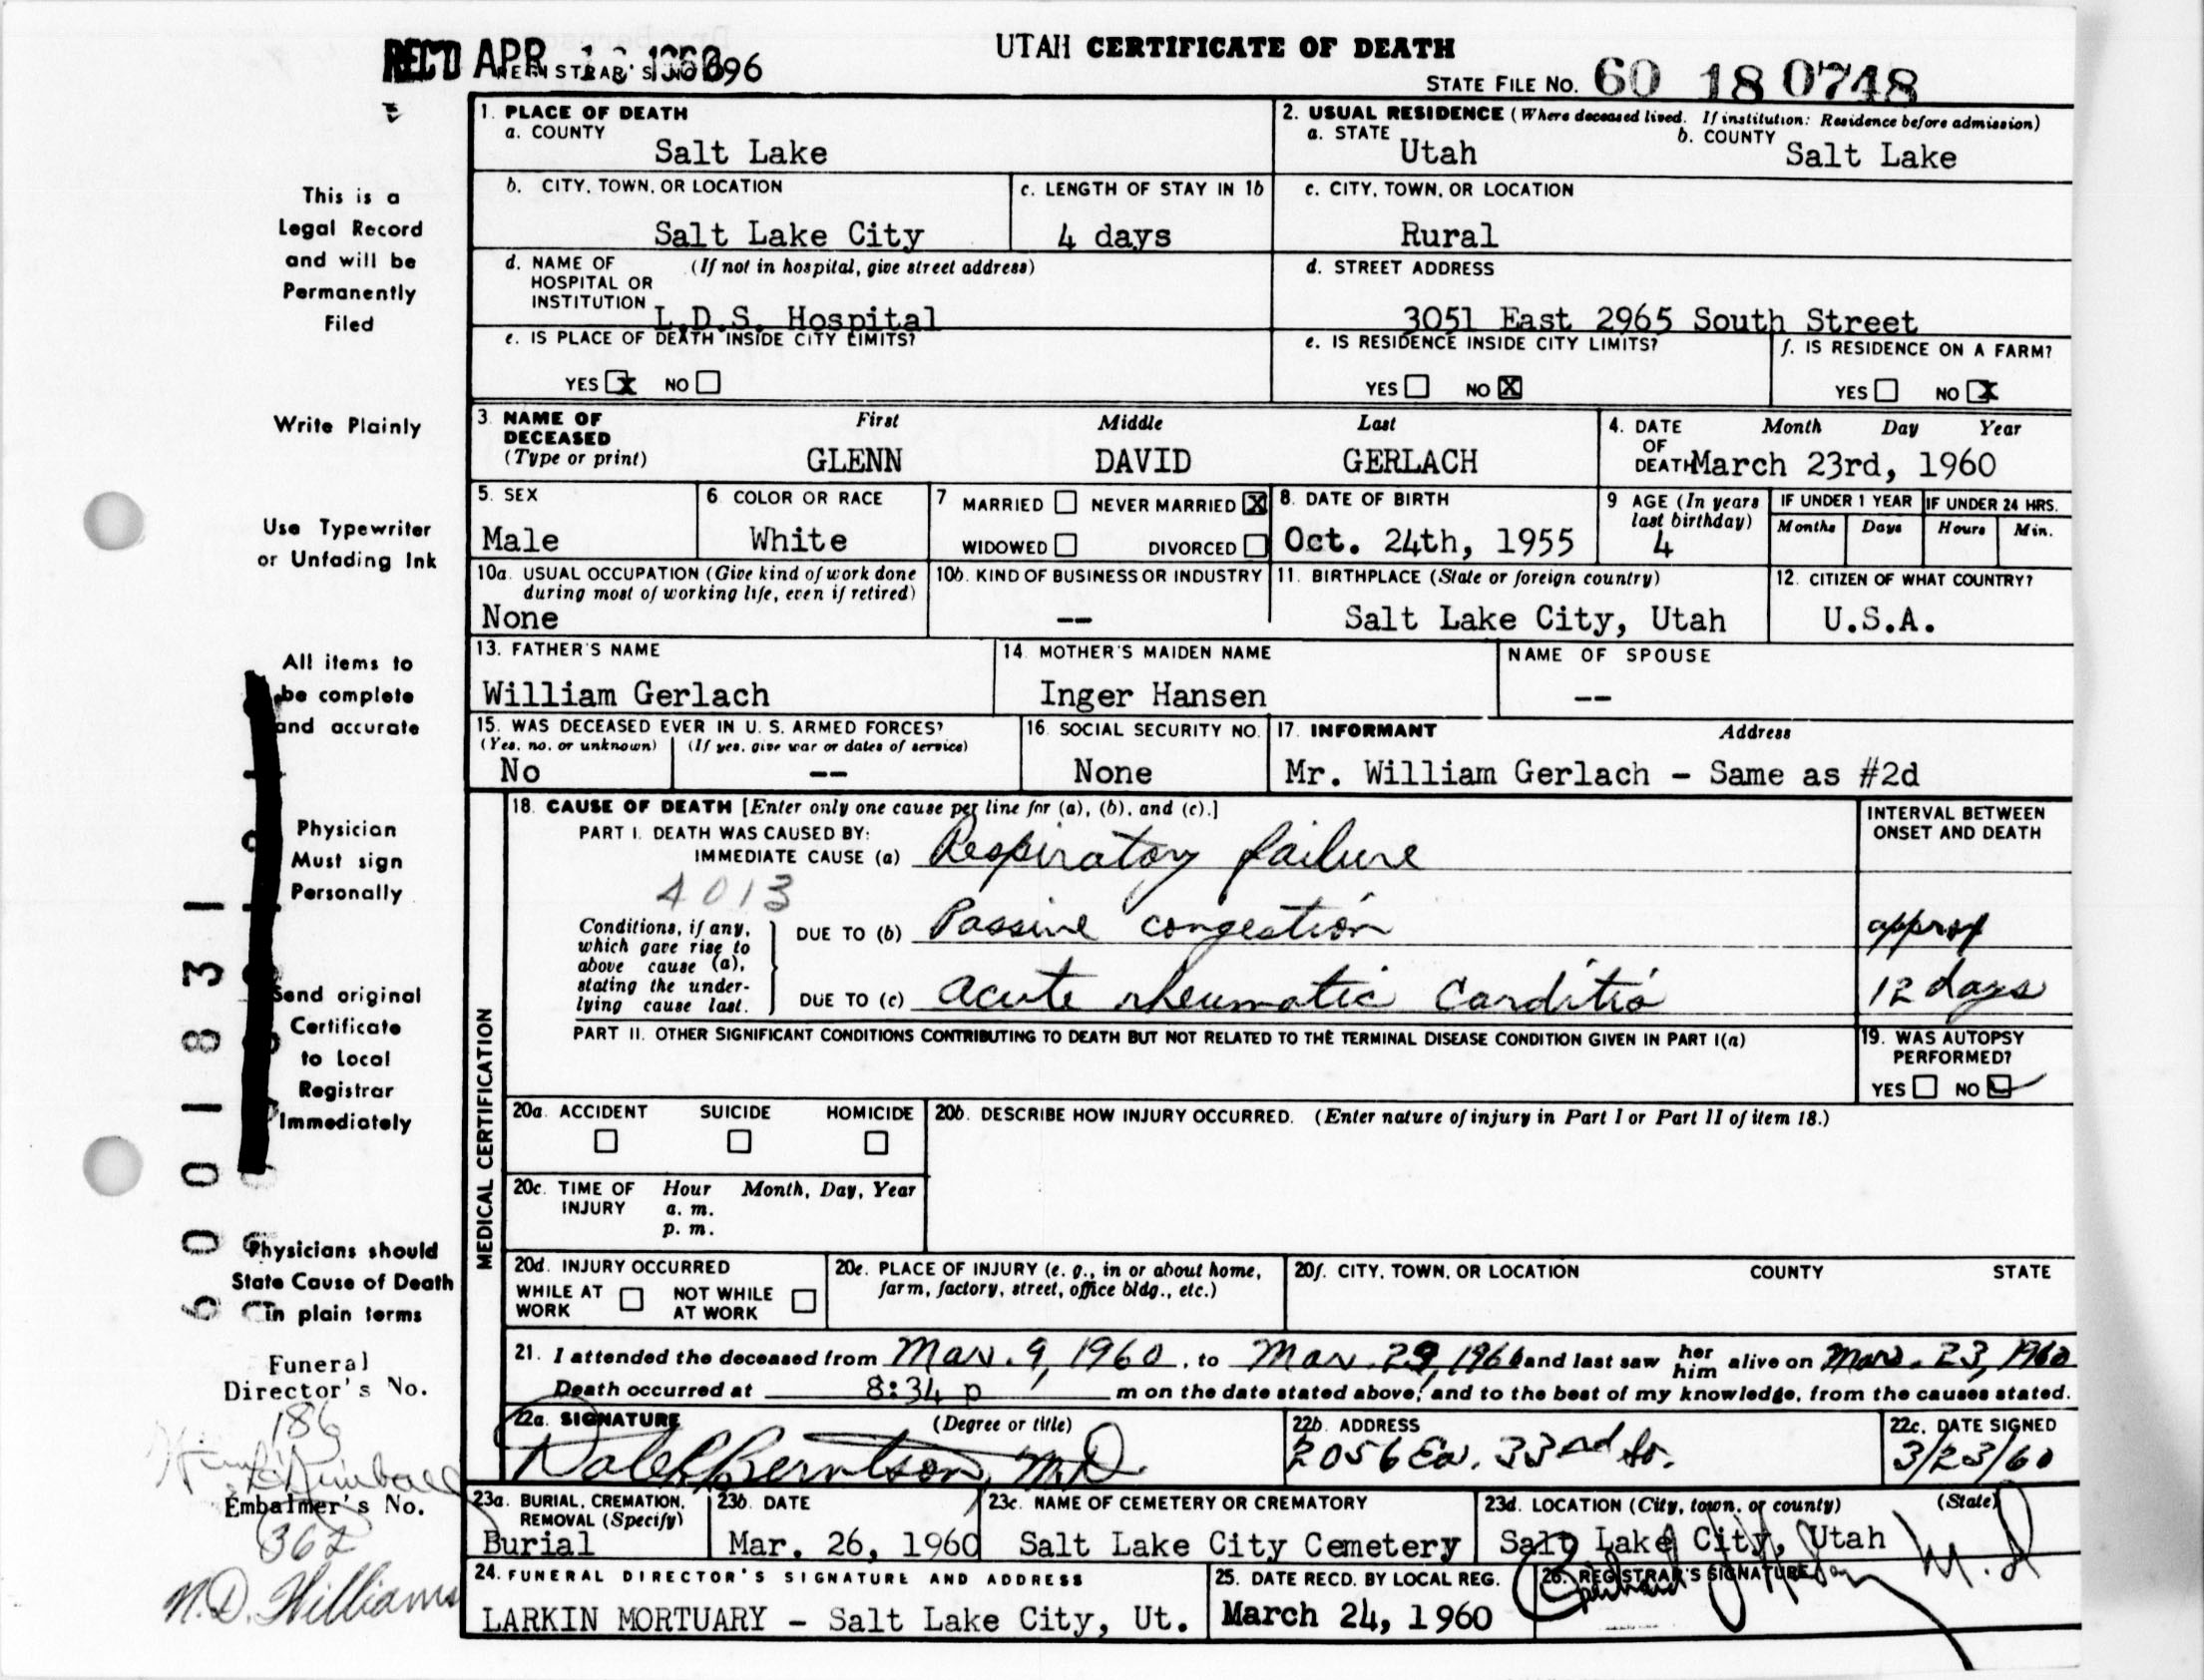 UTAH CERTIFICATE OF DEATH
REC'D APR
REGISTRAR'S NO. 696
STATE FILE NO. 60 18 0748
This is a
Legal Record
and will be
Permanently
Filed
Write Plainly
Use Typewriter
or Unfading Ink
All items to
be complete
and accurate
Physician
Must sign
Personally
Send original
Certificate
to Local
Registrar
Immediately
Physicians should
State Cause of Death
in plain terms
Funeral
Director's No.
186
Kimball
Embalmer's No.
362
N.D. Williams
6001831
1. PLACE OF DEATH
a. COUNTY
Salt Lake
2. USUAL RESIDENCE (Where deceased lived. If institution: Residence before admission)
a. STATE Utah b. COUNTY Salt Lake
b. CITY, TOWN, OR LOCATION
Salt Lake City
c. LENGTH OF STAY IN 1b
4 days
c. CITY, TOWN, OR LOCATION
Rural
d. NAME OF (If not in hospital, give street address)
HOSPITAL OR
INSTITUTION L.D.S. Hospital
d. STREET ADDRESS
3051 East 2965 South Street
e. IS PLACE OF DEATH INSIDE CITY LIMITS?
YES x NO
e. IS RESIDENCE INSIDE CITY LIMITS?
YES NO X
f. IS RESIDENCE ON A FARM?
YES NO X
3. NAME OF First Middle Last
DECEASED
(Type or print) GLENN DAVID GERLACH
4. DATE Month Day Year
OF
DEATH March 23rd, 1960
5. SEX
Male
6. COLOR OR RACE
White
7 MARRIED NEVER MARRIED X
WIDOWED DIVORCED
8. DATE OF BIRTH
Oct. 24th, 1955
9 AGE (In years
last birthday)
4
IF UNDER 1 YEAR
Months Days
IF UNDER 24 HRS.
Hours Min.
10a. USUAL OCCUPATION (Give kind of work done
during most of working life, even if retired)
None
10b. KIND OF BUSINESS OR INDUSTRY
--
11. BIRTHPLACE (State or foreign country)
Salt Lake City, Utah
12. CITIZEN OF WHAT COUNTRY?
U.S.A.
13. FATHER'S NAME
William Gerlach
14. MOTHER'S MAIDEN NAME
Inger Hansen
NAME OF SPOUSE
--
15. WAS DECEASED EVER IN U. S. ARMED FORCES?
(Yes, no, or unknown) (If yes, give war or dates of service)
No --
16. SOCIAL SECURITY NO.
None
17. INFORMANT Address
Mr. William Gerlach - Same as #2d
MEDICAL CERTIFICATION
18. CAUSE OF DEATH [Enter only one cause per line for (a), (b), and (c).]
INTERVAL BETWEEN
ONSET AND DEATH
PART I. DEATH WAS CAUSED BY:
IMMEDIATE CAUSE (a) Respiratory failure
4013
Conditions, if any,
which gave rise to
above cause (a),
stating the under-
lying cause last.
DUE TO (b) Passive congestion approx
DUE TO (c) acute rheumatic carditis 12 days
PART II. OTHER SIGNIFICANT CONDITIONS CONTRIBUTING TO DEATH BUT NOT RELATED TO THE TERMINAL DISEASE CONDITION GIVEN IN PART I(a)
19. WAS AUTOPSY
PERFORMED?
YES NO
20a. ACCIDENT SUICIDE HOMICIDE
20b. DESCRIBE HOW INJURY OCCURRED. (Enter nature of injury in Part I or Part II of item 18.)
20c. TIME OF Hour Month, Day, Year
INJURY a. m.
p. m.
20d. INJURY OCCURRED
WHILE AT WORK NOT WHILE AT WORK
20e. PLACE OF INJURY (e. g., in or about home,
farm, factory, street, office bldg., etc.)
20f. CITY, TOWN, OR LOCATION COUNTY STATE
21. I attended the deceased from Mar. 9, 1960, to Mar. 23, 1960 and last saw her him alive on Mar. 23, 1960
Death occurred at 8:34 p m on the date stated above, and to the best of my knowledge, from the causes stated.
22a. SIGNATURE (Degree or title)
Dale Berntson, M.D
22b. ADDRESS
2056 Ea. 33rd So.
22c. DATE SIGNED
3/23/60
23a. BURIAL, CREMATION,
REMOVAL (Specify)
Burial
23b. DATE
Mar. 26, 1960
23c. NAME OF CEMETERY OR CREMATORY
Salt Lake City Cemetery
23d. LOCATION (City, town, or county) (State)
Salt Lake City, Utah
24. FUNERAL DIRECTOR'S SIGNATURE AND ADDRESS
LARKIN MORTUARY - Salt Lake City, Ut.
25. DATE RECD. BY LOCAL REG.
March 24, 1960
26. REGISTRAR'S SIGNATURE
M.D